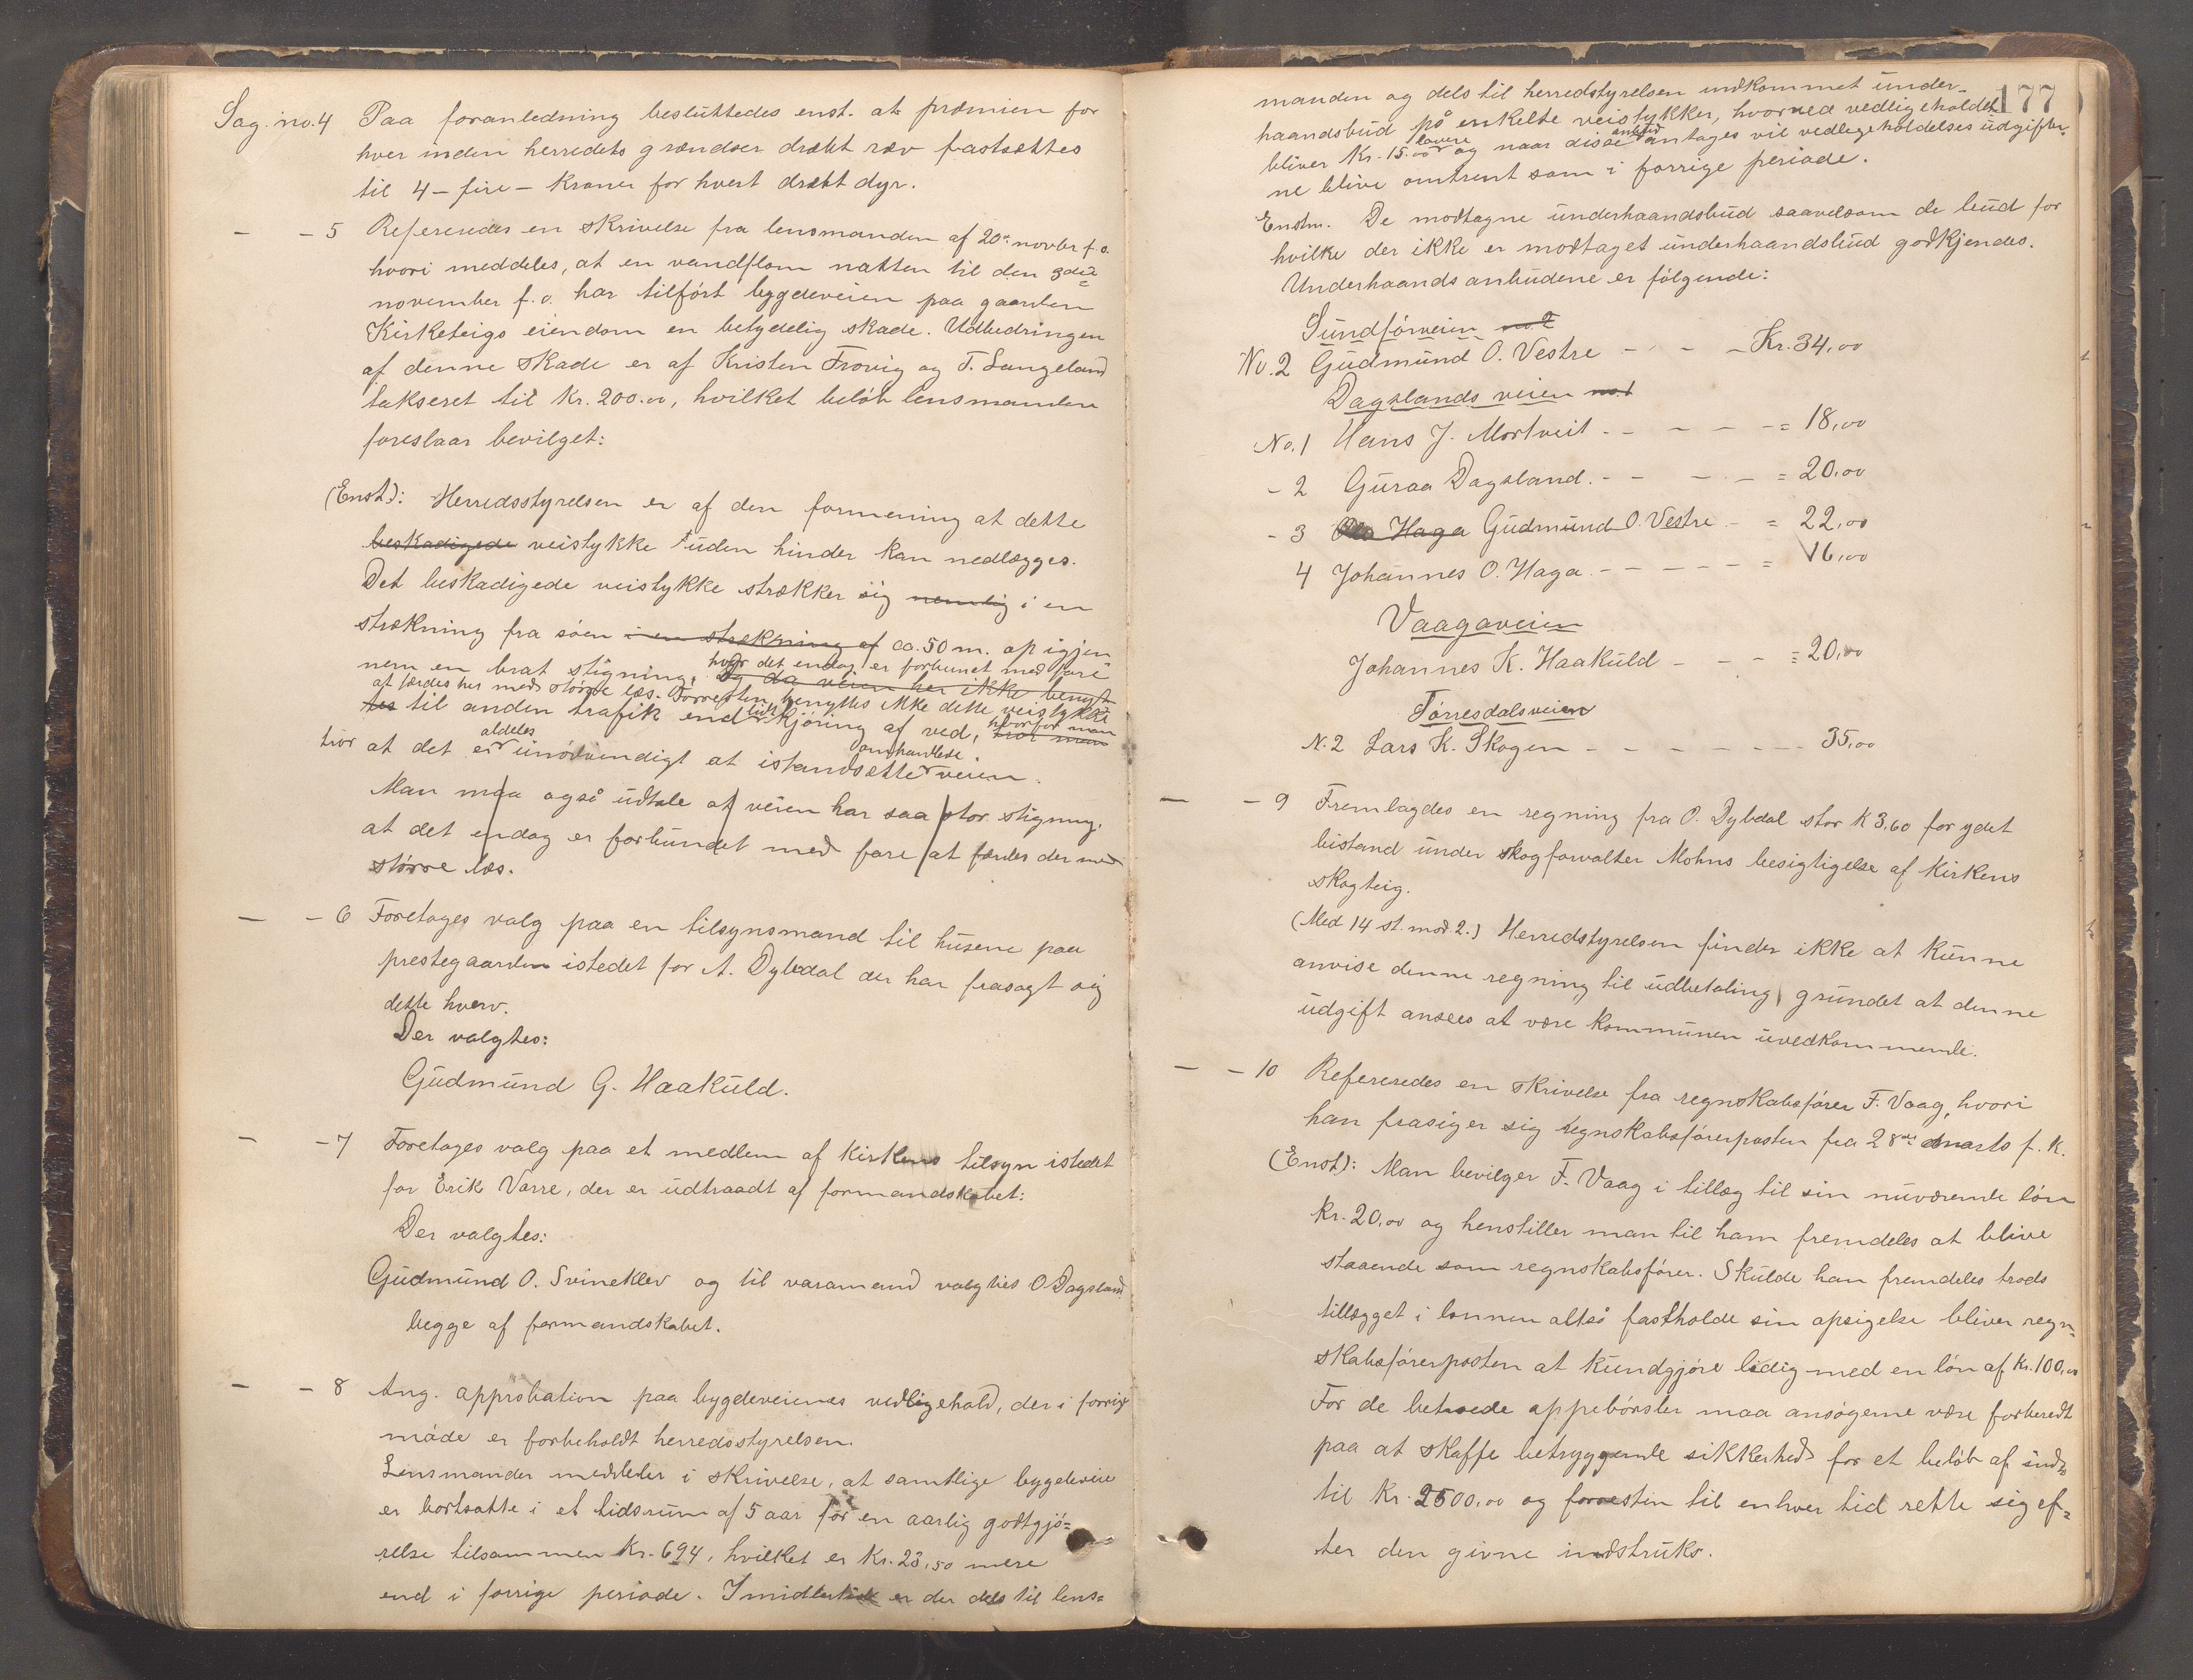 Sag. no. 4 Paa foranledning besluttedes enst. at præmien for
hver inden herredets grændser dræbt ræv fastsættes
til 4 - fire - kroner for hvert dræbt dyr.
- - 5 Refereredes en skrivelse fra lensmanden af 20de novbr f. a.
hvori meddeles, at en vandflom natten til den 3die
november f. a. har tilført bygdeveien paa gaarden
Kirketeigs eiendom en betydelig skade. Udbedringen
af denne skade er af Kristen Frøvig og T. Langeland
takseret til Kr. 200.00, hvilket beløb lensmanden
foreslaar bevilget:
(Enst): Herredsstyrelsen er af den formening at dette
beskadigede veistykke uden hinder kan nedlægges.
Det beskadigede veistykke strækker sig nemlig i en
strækning fra søen i en strækning af ca. 50 m. op igjen
nem en brat stigning, hvor det endog er forbunet med fare
Og da veien her ikke benyt
at færdes her med større læs. Forresten benyttes ikke dette veistykke
tes til anden trafik end lidt kjøring af ved, hvorfor man
tror man
tror at det er aldeles unødvendigt at istandsætte omhandlede veien.
Man maa også udtale at veien har saa stor stigning,
at det endog er forbundet med fare at færdes der med
større læs.
- - 6 Foretages valg paa en tilsynsmand til husene paa
prestegaarden istedet for A. Dybdal der har frasagt sig
dette hverv.
Der valgtes:
Gudmund G. Haakuld.
- - 7 Foretages valg paa et medlem af kirkens tilsyn istedet
for Erik Varre, der er udtraadt af formandskabet:
Der valgtes:
Gudmund O. Svineklev og til varamand valgtes O. Dagsland
begge af formandskabet.
- - 8 Ang. approbation paa bygdeveienes vedligehold, der i forrige
møde er forbeholdt herredsstyrelsen.
Lensmanden meddeler i skrivelse, at samtlige bygdeveie
er bortsatte i et tidsrum af 5 aar for en aarlig godtgjø=
relse tilsammen Kr. 694, hvilket er Kr. 23,50 mere
end i forrige periode. Imidlertid er der dels til lens=
177
manden og dels til herredstyrelsen indkommet under-
haandsbud på enkelte veistykker, hvorved vedligeholdet
bliver Kr. 15.00 lavere og naar disse anbud antages vil vedligeholdelses udgifter-
ne blive omtrent som i forrige periode.
Enstm. De modtagne underhaandsbud saavelsom de bud for
hvilke der ikke er modtaget underhaandsbud godkjendes.
Underhaands anbudene er følgende:
Sundførveien no. 2
No. 2 Gudmund O. Vestre - - - Kr. 34,00
Dagslands veien no. 1
No. 1 Hans J. Mortveit - - - - = 18,00
- 2 Guraa Dagsland. - - - - = 20,00
- 3 Ole Haga Gudmund O. Vestre - = 22,00
4 Johannes O. Haga - - - - - = 16,00
Vaagaveien
Johannes K. Haakuld - - - = 20,00
Førresdalsveien
N. 2 Lars K. Skogen - - - - - - - 35,00
- - 9 Fremlagdes en regning fra O. Dybdal stor K 3,60 for ydet
bistand under skogforvalter Mohns besigtigelse af Kirkens
skogteig.
(Med 14 st. mod 2.) Herredstyrelsen finder ikke at kunne
anvise denne regning til udbetaling grundet at denne
udgift ansees at være kommunen uvedkommende.
- - 10 Refereredes en skrivelse fra regnskabsfører F. Vaag, hvori
han frasiger sig regnskabsførerposten fra 28de marts f. k.
(Enst): Man bevilger F. Vaag i tillæg til sin nuværende løn
Kr. 20,00 og henstiller man til ham fremdeles at blive
staaende som regnskabsfører. Skulde han fremdeles trods
tillægget i lønnen altså fastholde sin opsigelse bliver regn=
skabsførerposten at kundgjøre ledig med en løn af Kr. 100,00
For de betroede oppebørsler maa ansøgerne være forberedt
paa at skaffe betryggende sikkerhed for et beløb af ind=
til Kr. 2500,00 og forresten til enhver tid rette sig ef=
ter den givne indstruks.